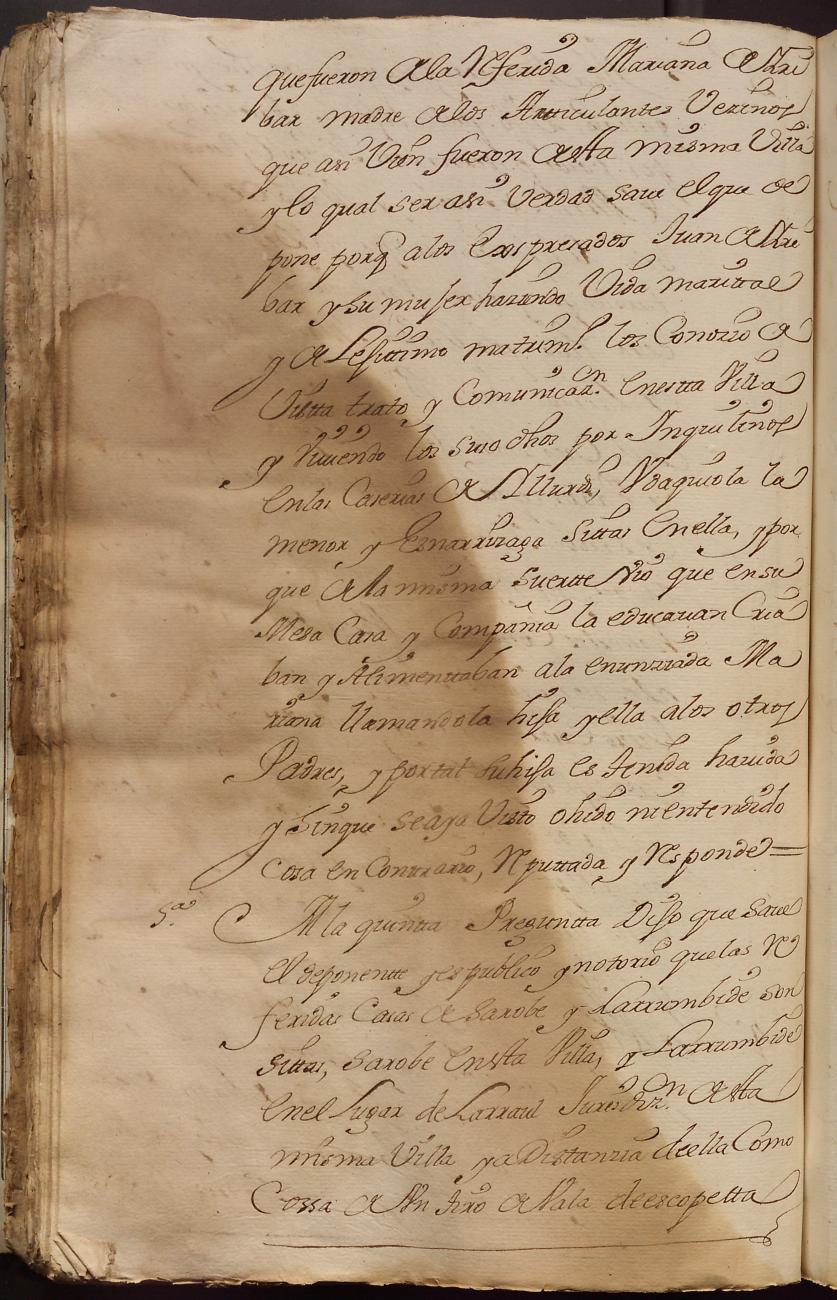 que fueron de la Referida Mariana de Yrri
bar madre de los Articulantes Vezinos
que asi Vien fueron de esta misma Villa
y lo qual ser asi Verdad save el que de
pone porq̃ a los Exspresados Juan de Yrri
bar y su mujer haziendo Vida marital
y de Lejitimo matrim.º los Conozio de
Vista trato y Comunicaz.on en estta Villa
y Viviendo los suso dhos por Inquilinos
en las Caserias de Yllurdi, Ydaquiola la
menor y Esnarrizaga Sittas en ella, y por
que de la misma Suertte Vio que en su
Mesa Casa y Compañia la educavan Cria
ban y Alimenttaban a la enunziada Ma
riana llamandola hija y ella a los otros
Padres, y por tal su hija es tenida havida
y Sin que se aya Visto ohido ni entendido
cosa en Contrario, Reputtada y Responde=
5.ª A la quintta Pregunta Dijo que Save
el deponente y es publico y notorio que las Re
feridas Casas de Sarobe y Larrumbide son
sittas, Sarobe en esta Villa, y Larrumbide
en el Lugar de Larraul Jurisdiz.n de esta
misma Villa y a Distanzia de ella Como
Cossa de Un tiro de Vala de escopetta